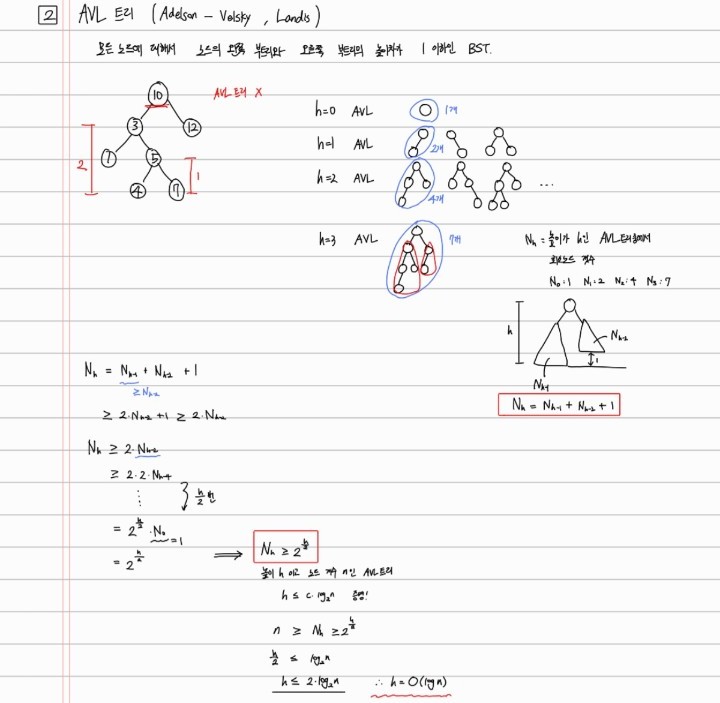 2 AVL 트리 (Adelson - Velsky, Landis)
모든 노드에 대해서 노드의 왼쪽 부트리와 오른쪽 부트리의 높이차가 1 이하인 BST.
AVL 트리 X
10
3
12
1
5
4
7
2
1
h=0 AVL 1개
h=1 AVL 2개
h=2 AVL 4개 ...
h=3 AVL 7개
Nh = 높이가 h인 AVL트리중에서
최소노드 갯수
N₀:1 N₁:2 N₂:4 N₃:7
h
Nh-2
1
Nh-1
Nh = Nh-1 + Nh-2 + 1
Nh = Nh-1 + Nh-2 + 1
≥ Nh-2
≥ 2·Nh-2 + 1 ≥ 2·Nh-2
Nh ≥ 2·Nh-2
≥ 2·2·Nh-4
⋮ h/2 번
= 2^(h/2) · N₀ = 1
= 2^(h/2)
⟹ Nh ≥ 2^(h/2)
높이 h 이고 노드 개수 n인 AVL트리
h ≤ c·log₂n 증명!
n ≥ Nh ≥ 2^(h/2)
h/2 ≤ log₂n
h ≤ 2·log₂n ∴ h = O(log n)